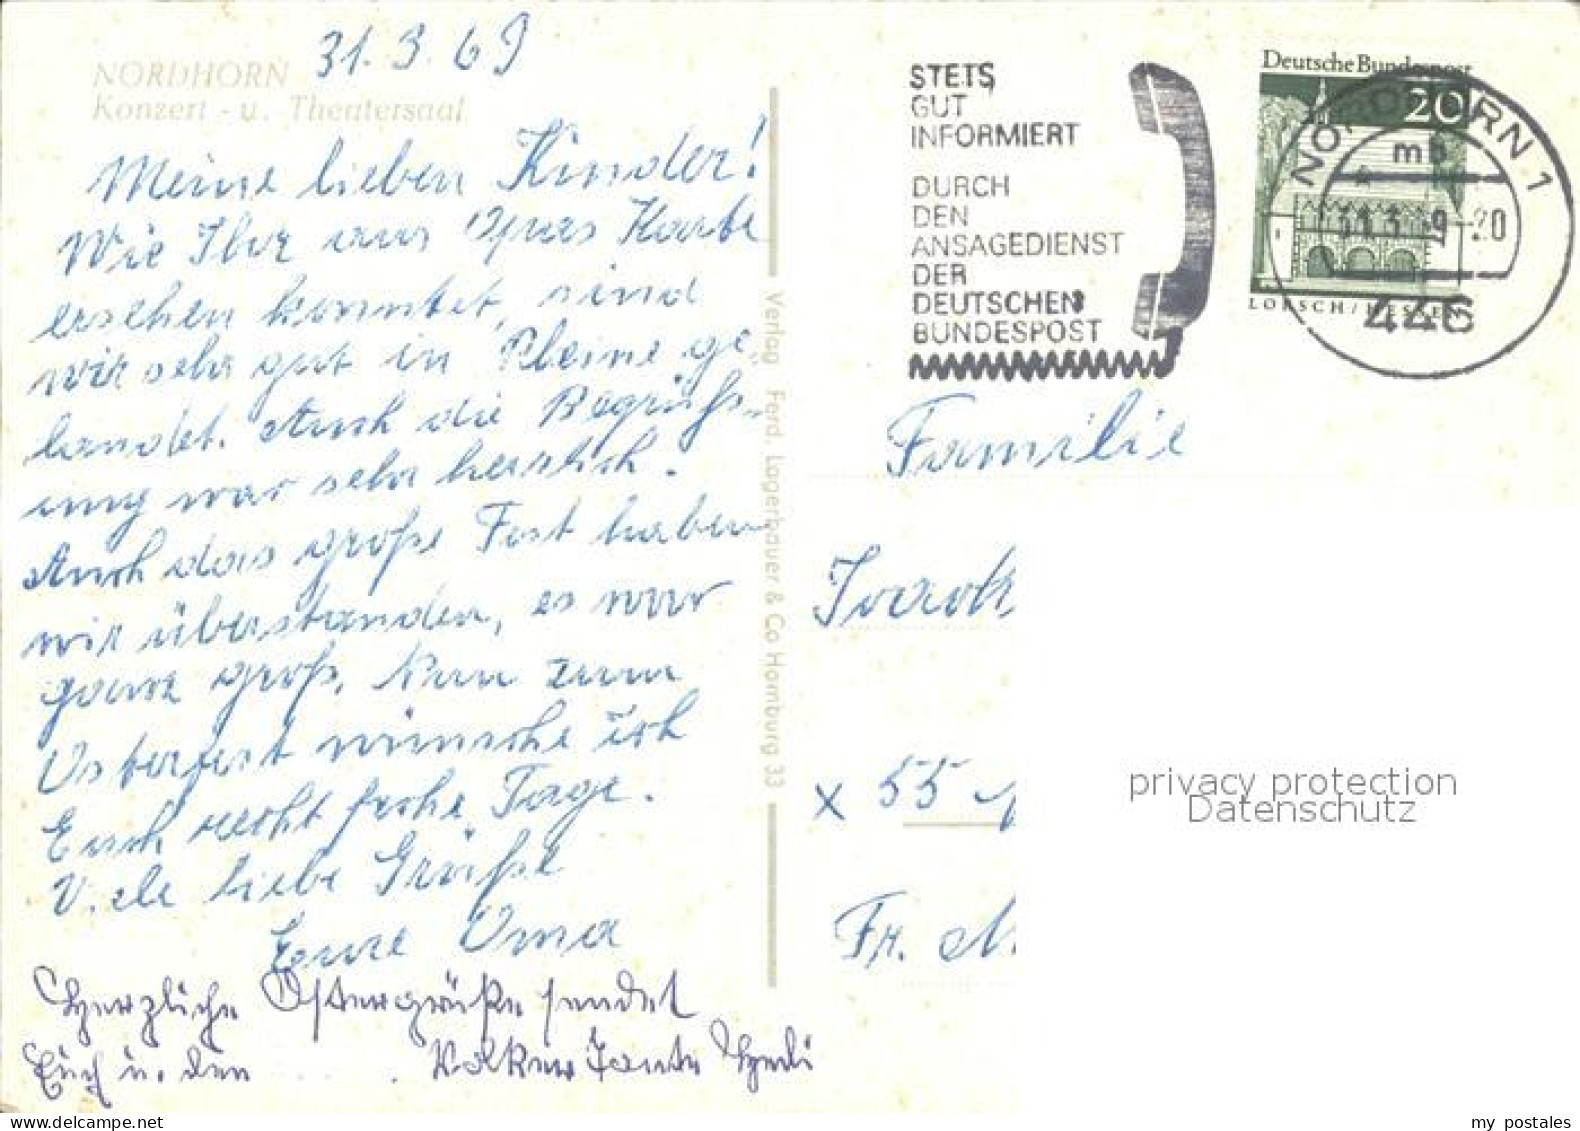 NORDHORN
Konzert - u. Theatersaal
31.3.69
Meine lieben Kinder!
Wie Ihr aus Opas Karte
ersehen konntet, sind
wir sehr gut in Kleine ge-
landet. Auch die Begrüß-
ung war sehr herzlich.
Auch das große Fest haben
wir überstanden, es war
ganz groß. Nun zum
Osterfest wünsche ich
Euch recht frohe Tage.
Viele liebe Grüße
Eure Oma
Herzliche Ostergrüße sendet
Euch u. den Volker Tante Hedi
Verlag Ferd. Lagerbauer & Co Homburg 33
STETS
GUT
INFORMIERT
DURCH
DEN
ANSAGEDIENST
DER
DEUTSCHEN
BUNDESPOST
Deutsche Bundespost
20
LORSCH/HESSEN
NORDHORN 1
mb
31.3.69-20
446
Familie
x 55
Fr.
privacy protection
Datenschutz
my postales